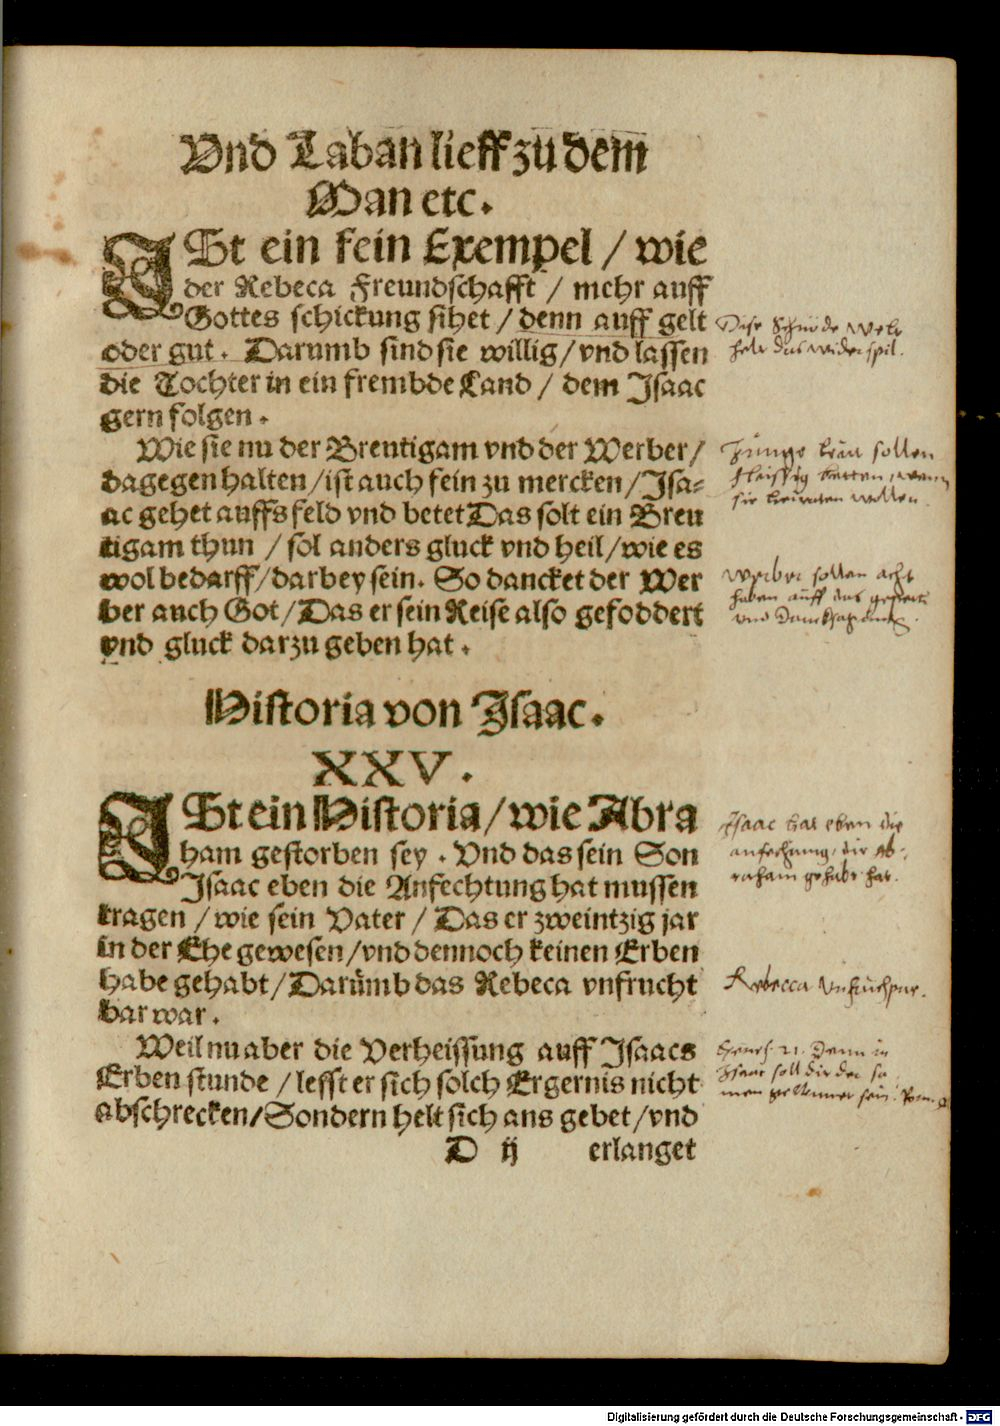 Vnd Laban lieff zu dem
Man etc.
ISt ein fein Exempel / wie
der Rebeca Freundschafft / mehr auff
Gottes schickung sihet / denn auff gelt
oder gut. Darumb sind sie willig / vnd lassen
die Tochter in ein frembde Land / dem Isaac
gern folgen.
Diese Schnöde Welt
helt das widerspil.
Wie sie nu der Breutigam vnd der Werber /
dagegen halten / ist auch fein zu mercken / Isa⸗
ac gehet auffs feld vnd betet Das solt ein Breu
tigam thun / sol anders gluck vnd heil / wie es
wol bedarff / darbey sein. So dancket der Wer
ber auch Got / Das er sein Reise also gefoddert
vnd gluck darzu geben hat.
Junge leut sollen
fleissig betten, wenn
sie heuraten wollen.
Werber sollen acht
haben auff das gebett
vnd Dancksagung.
Historia von Isaac.
XXV.
ISt ein Historia / wie Abra
ham gestorben sey. Vnd das sein Son
Isaac eben die Anfechtung hat mussen
tragen / wie sein Vater / Das er zweintzig jar
in der Ehe gewesen / vnd dennoch keinen Erben
habe gehabt / Darumb das Rebeca vnfrucht
bar war.
Isaac hat eben die
anfechtung, die Ab⸗
raham gehabt hat.
Rebecca Unfruchpar.
Weil nu aber die Verheissung auff Isaacs
Erben stunde / lesst er sich solch Ergernis nicht
abschrecken / Sondern helt sich ans gebet / vnd
Genes. 21. Denn in
Isaac soll dir der sa
men genennet sein. Rom. 9
D ij erlanget
Digitalisierung gefördert durch die Deutsche Forschungsgemeinschaft - DFG